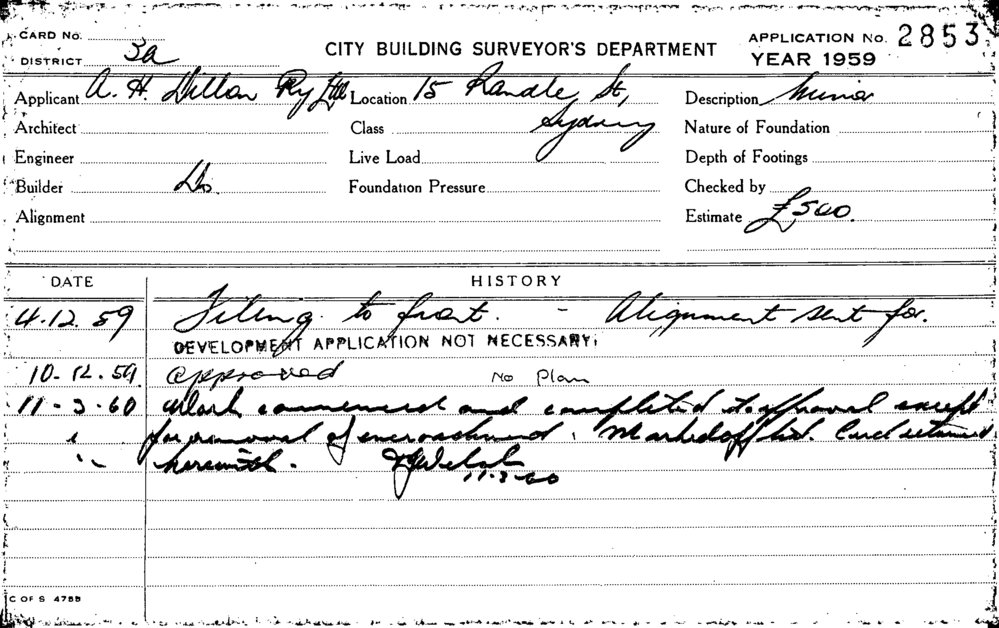 CARD No.
DISTRICT 3a
CITY BUILDING SURVEYOR'S DEPARTMENT
APPLICATION No. 2853
YEAR 1959
Applicant A. H. Dillon Pty Ltd Location 15 Randle St, Description Minor
Architect Class Sydney Nature of Foundation
Engineer Live Load Depth of Footings
Builder Do. Foundation Pressure Checked by
Alignment Estimate £500.
DATE HISTORY
4.12.59 Tiling to front. - Alignment sent for.
DEVELOPMENT APPLICATION NOT NECESSARY.
10.12.59. Approved No Plan
11-3-60 Work commenced and completed to approval except
for removal of encroachment. Marked off list. Card returned
herewith. Welsh
11-3-60
C OF S 475B